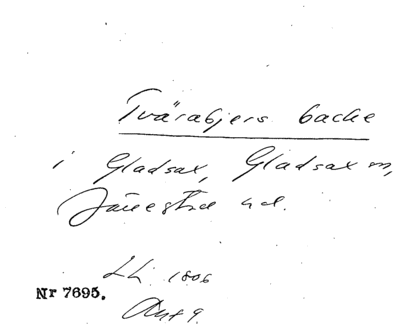 Tvärabjers backe
i Gladsax, Gladsax sn,
Järrestad hd.
LL. 1806
Nr 7695.
Akt 9.